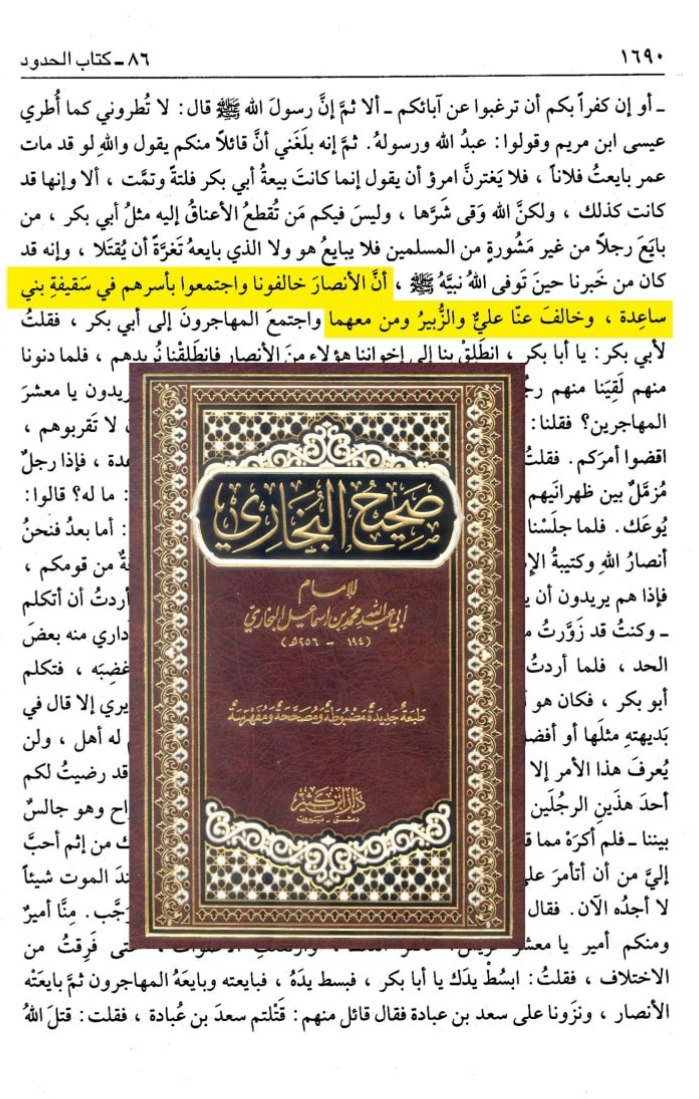 ١٦٩٠
٨٦ ـ كتاب الحدود
ـ أو إن كفراً بكم أن ترغبوا عن آبائكم ـ ألا ثمَّ إنَّ رسولَ الله ﷺ قال: لا تُطروني كما أُطري
عيسى ابن مريم وقولوا: عبدُ الله ورسولهُ. ثمَّ إنه بلَغَني أنَّ قائلاً منكم يقول واللهِ لو قد مات
عمر بايعتُ فلاناً ، فلا يَغترنَّ امرؤ أن يقول إنما كانت بيعةُ أبي بكر فلتةً وتمَّت ، ألا وإنها قد
كانت كذلك ، ولكنَّ الله وَقى شَرَّها ، وليسَ فيكم مَن تُقطعُ الأعناقُ إليه مثلُ أبي بكر ، من
بايَعَ رجلاً من غير مَشُورةٍ من المسلمين فلا يبايعُ هو ولا الذي بايعهُ تَغرَّةً أن يُقتَلا ، وإنه قد
كان من خَبرنا حينَ تَوفى اللهُ نبيَّهُ ﷺ ، أنَّ الأنصارَ خالفونا واجتمعوا بأسرهم في سَقيفةِ بني
ساعِدة ، وخالفَ عنّا عليٌّ والزُّبيرُ ومن معهما واجتمعَ المهاجرونَ إلى أبي بكر ، فقلتُ
لأبي بكر: يا أبا بكر ، انطَلِقْ بنا إلى إخواننا هؤلاء منَ الأنصار فانطَلقْنا نُريدهم ، فلما دنونا
منهم لَقِيَنا منهم
يريدون يا معشرَ
المهاجرين؟ فقلنا:
لا تَقربوهم ،
اقضوا أمرَكم. فقلتُ
فإذا رجلٌ
مُزمَّلٌ بين ظهرانَيهم
: ما له؟ قالوا:
يُوعَك. فلما جلَسْنا
: أما بعدُ فنحنُ
أنصارُ اللهِ وكتيبةُ
من قومكم ،
فإذا هم يريدون أن
أردتُ أن أتكلم
ـ وكنتُ قد زَوَّرتُ
أداري منه بعضَ
الحد ، فلما أردتُ
فتكلم
أبو بكر ، فكان هو
إلا قال في
بَديهتهِ مثلَها أو
له أهل ، ولن
يُعرفَ هذا الأمر إلا
قد رضيتُ لكم
أحدَ هذَينِ الرجُلَين
وهو جالسٌ
بيننا ـ فلم أكرَهْ مما
من إثم أحبَّ
إليَّ من أن أتأمرَ
الموت شيئاً
لا أجدُه الآن. فقال
مِنَّا أميرٌ
ومنكم أمير يا معشرَ
حتى فَرِقتُ من
الاختلاف ، فقلتُ: ابسُطْ يدَك يا أبا بكر ، فبسط يدَهُ ، فبايعته وبايعَهُ المهاجرون ثمَّ بايعَتْه
الأنصار ، ونزَونا على سعد بن عبادة فقال قائل منهم: قَتْلتم سعدَ بن عُبادة ، فقلت: قتلَ اللهُ
صَحِيحُ البُخَارِي
للإمام
أبي عبد الله محمد بن إسماعيل البخاري
(١٩٤ – ٢٥٦هـ)
طَبعَةٌ جَديدَةٌ مَضْبُوطَةٌ وَمُصَحَّحَةٌ وَمُفَهْرَسَةٌ
دار ابن كثير
دمشق - بيروت